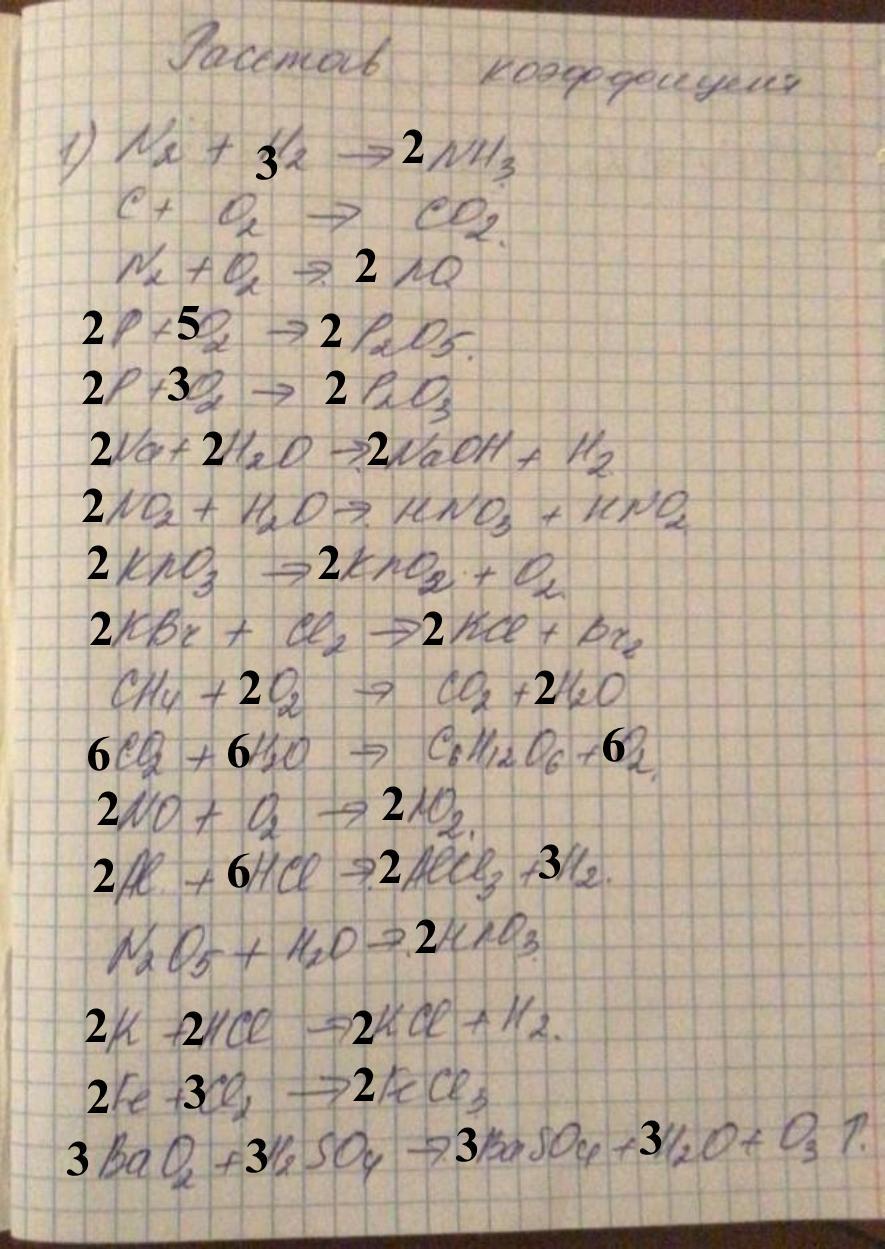 Расстав коэффициент
1) N₂ + 3H₂ → 2NH₃
C + O₂ → CO₂.
N₂ + O₂ → 2 NO
2P + 5O₂ → 2 P₂O₅.
2P + 3O₂ → 2 P₂O₃
2Na + 2H₂O → 2NaOH + H₂
2NO₂ + H₂O → HNO₃ + HNO₂
2 KNO₃ → 2KNO₂ + O₂
2KBr + Cl₂ → 2KCl + Br₂
CH₄ + 2O₂ → CO₂ + 2H₂O
6CO₂ + 6H₂O → C₆H₁₂O₆ + 6O₂.
2NO + O₂ → 2NO₂.
2Al + 6HCl → 2AlCl₃ + 3H₂.
N₂O₅ + H₂O → 2HNO₃
2K + 2HCl → 2KCl + H₂.
2Fe + 3Cl₂ → 2FeCl₃
3 BaO₂ + 3H₂SO₄ → 3BaSO₄ + 3H₂O + O₃ ↑.